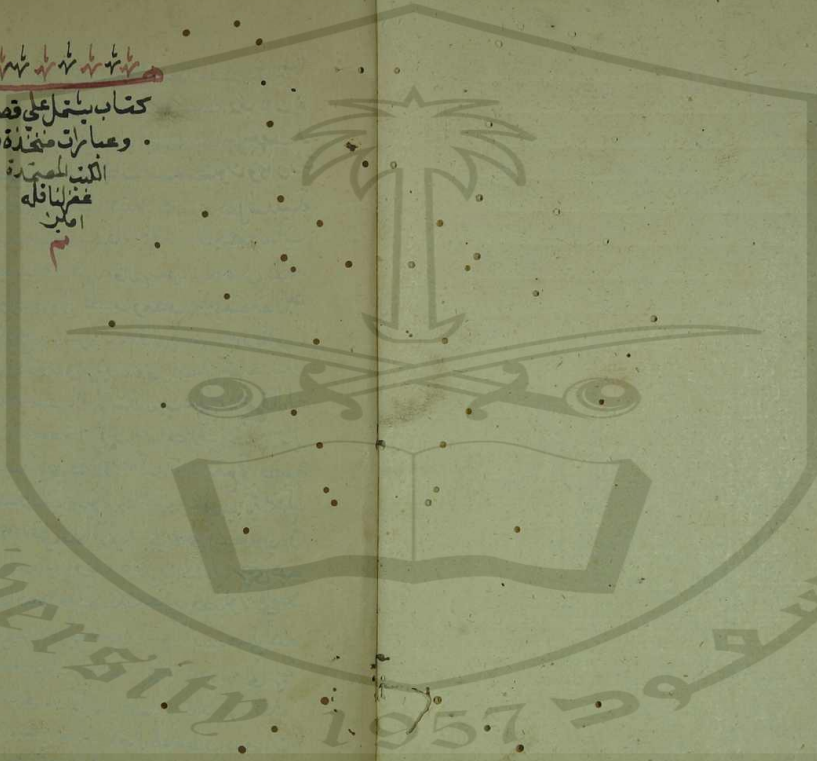 كتاب يشتمل على قص
وعبارات متخذة
الكتب المعتمدة
غفر لناقله
امين
م
versity 1957 سعود